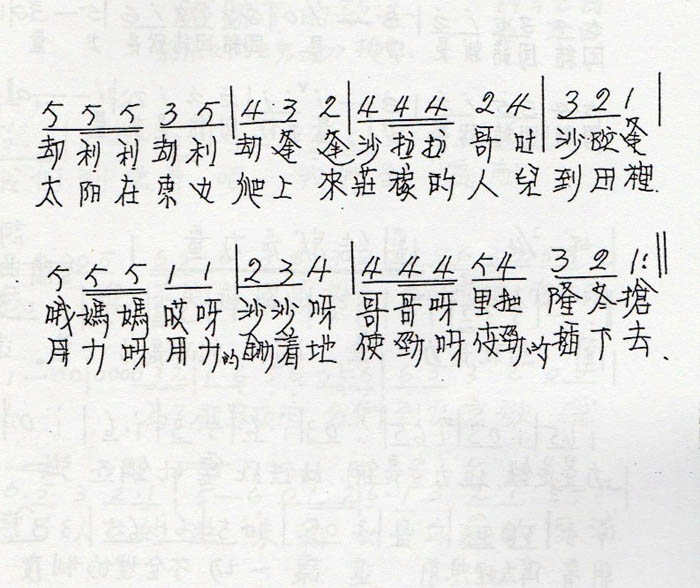 5 5 5 3 5 | 4 3 2 | 4 4 4 2 4 | 3 2 1 |
劫利利劫利 劫篷篷 沙拉拉哥吐 沙咬篷
太阳在東边爬上來 莊稼的人兒到田裡.
5 5 5 1 1 | 2 3 4 | 4 4 4 5 4 3 2 1 :||
哦媽媽哎呀 沙沙呀 哥哥呀里拉 隆冬搶
用力呀用力的 着地 使勁呀使勁的 下去.